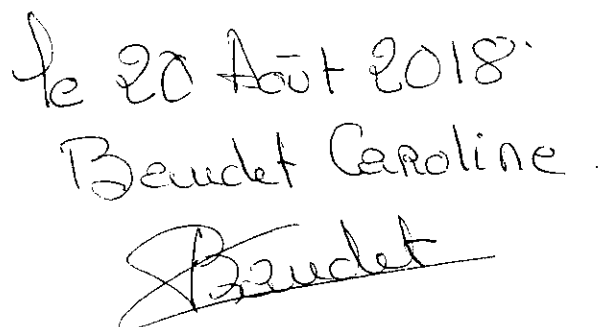 le 20 Août 2018.
Beaudet Caroline.
Beaudet